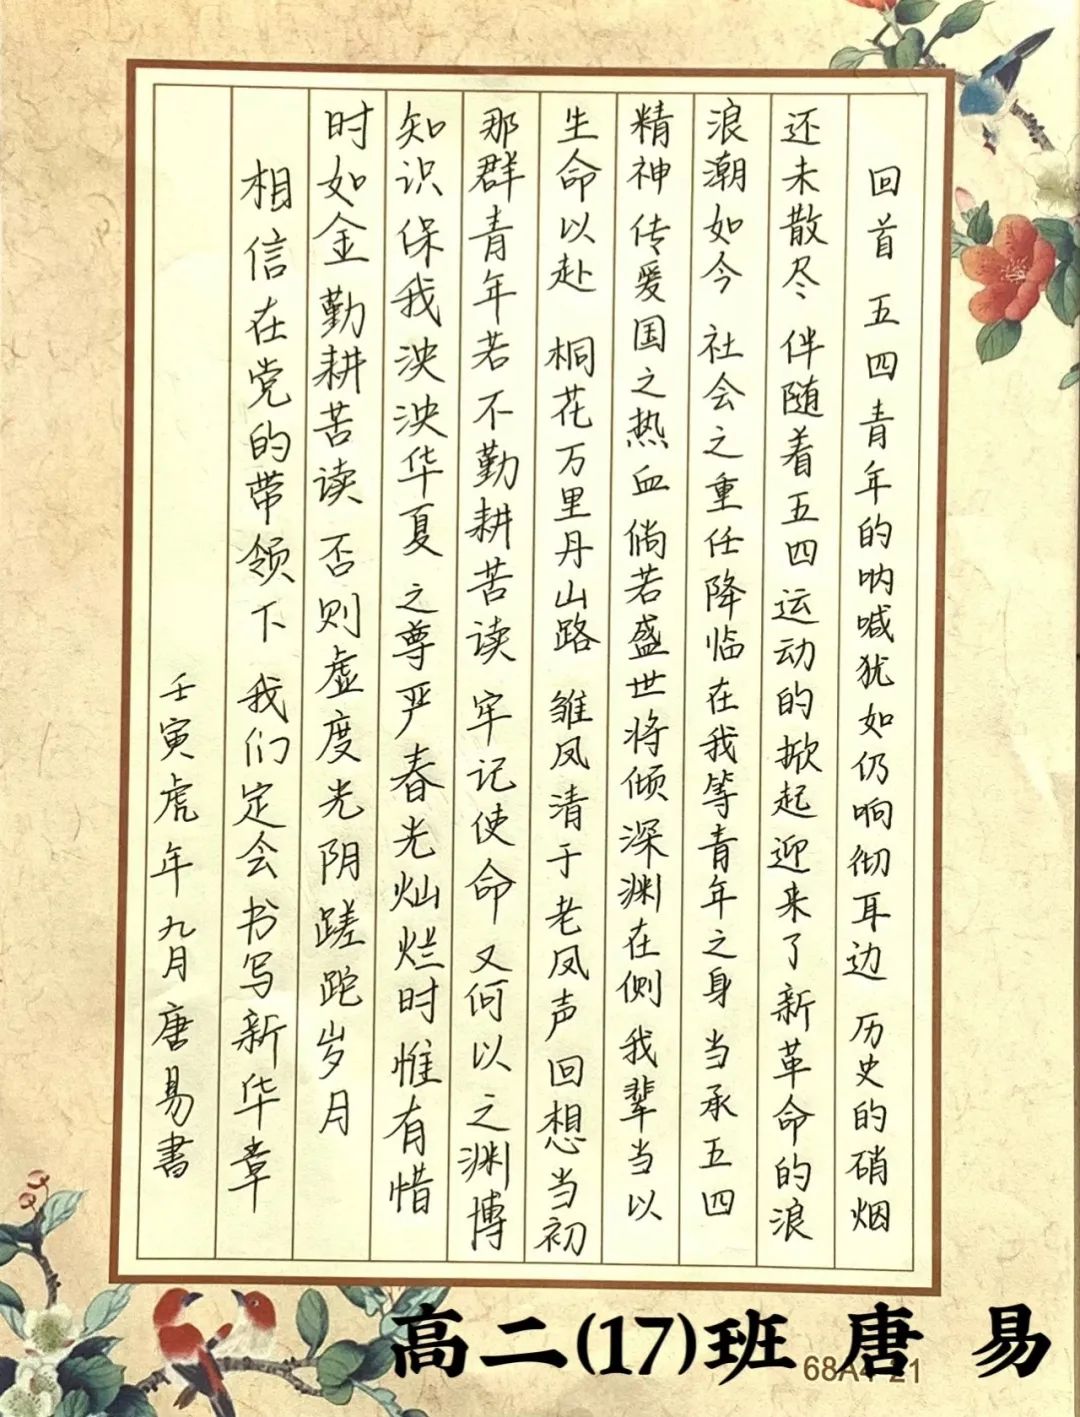 回首 五四青年的呐喊犹如仍响彻耳边 历史的硝烟
还未散尽 伴随着五四运动的掀起迎来了新革命的浪
浪潮如今 社会之重任降临在我等青年之身 当承五四
精神传爱国之热血 倘若盛世将倾深渊在侧 我辈当以
生命以赴 桐花万里丹山路 雏凤清于老凤声 回想当初
那群青年若不勤耕苦读 牢记使命 又何以之渊博
知识保我泱泱华夏 之尊严 春光灿烂时 惟有惜
时如金 勤耕苦读 否则虚度光阴蹉跎岁月
相信在党的带领下 我们定会书写新华章
壬寅虎年九月唐易書
高二(17)班 唐 易
68A4-21